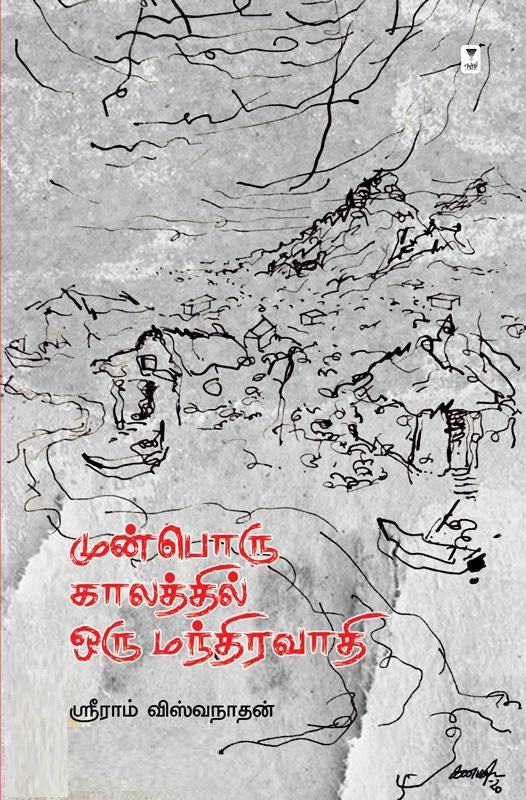 முன்பொரு
காலத்தில்
ஒரு மந்திரவாதி
ஸ்ரீராம் விஸ்வநாதன்